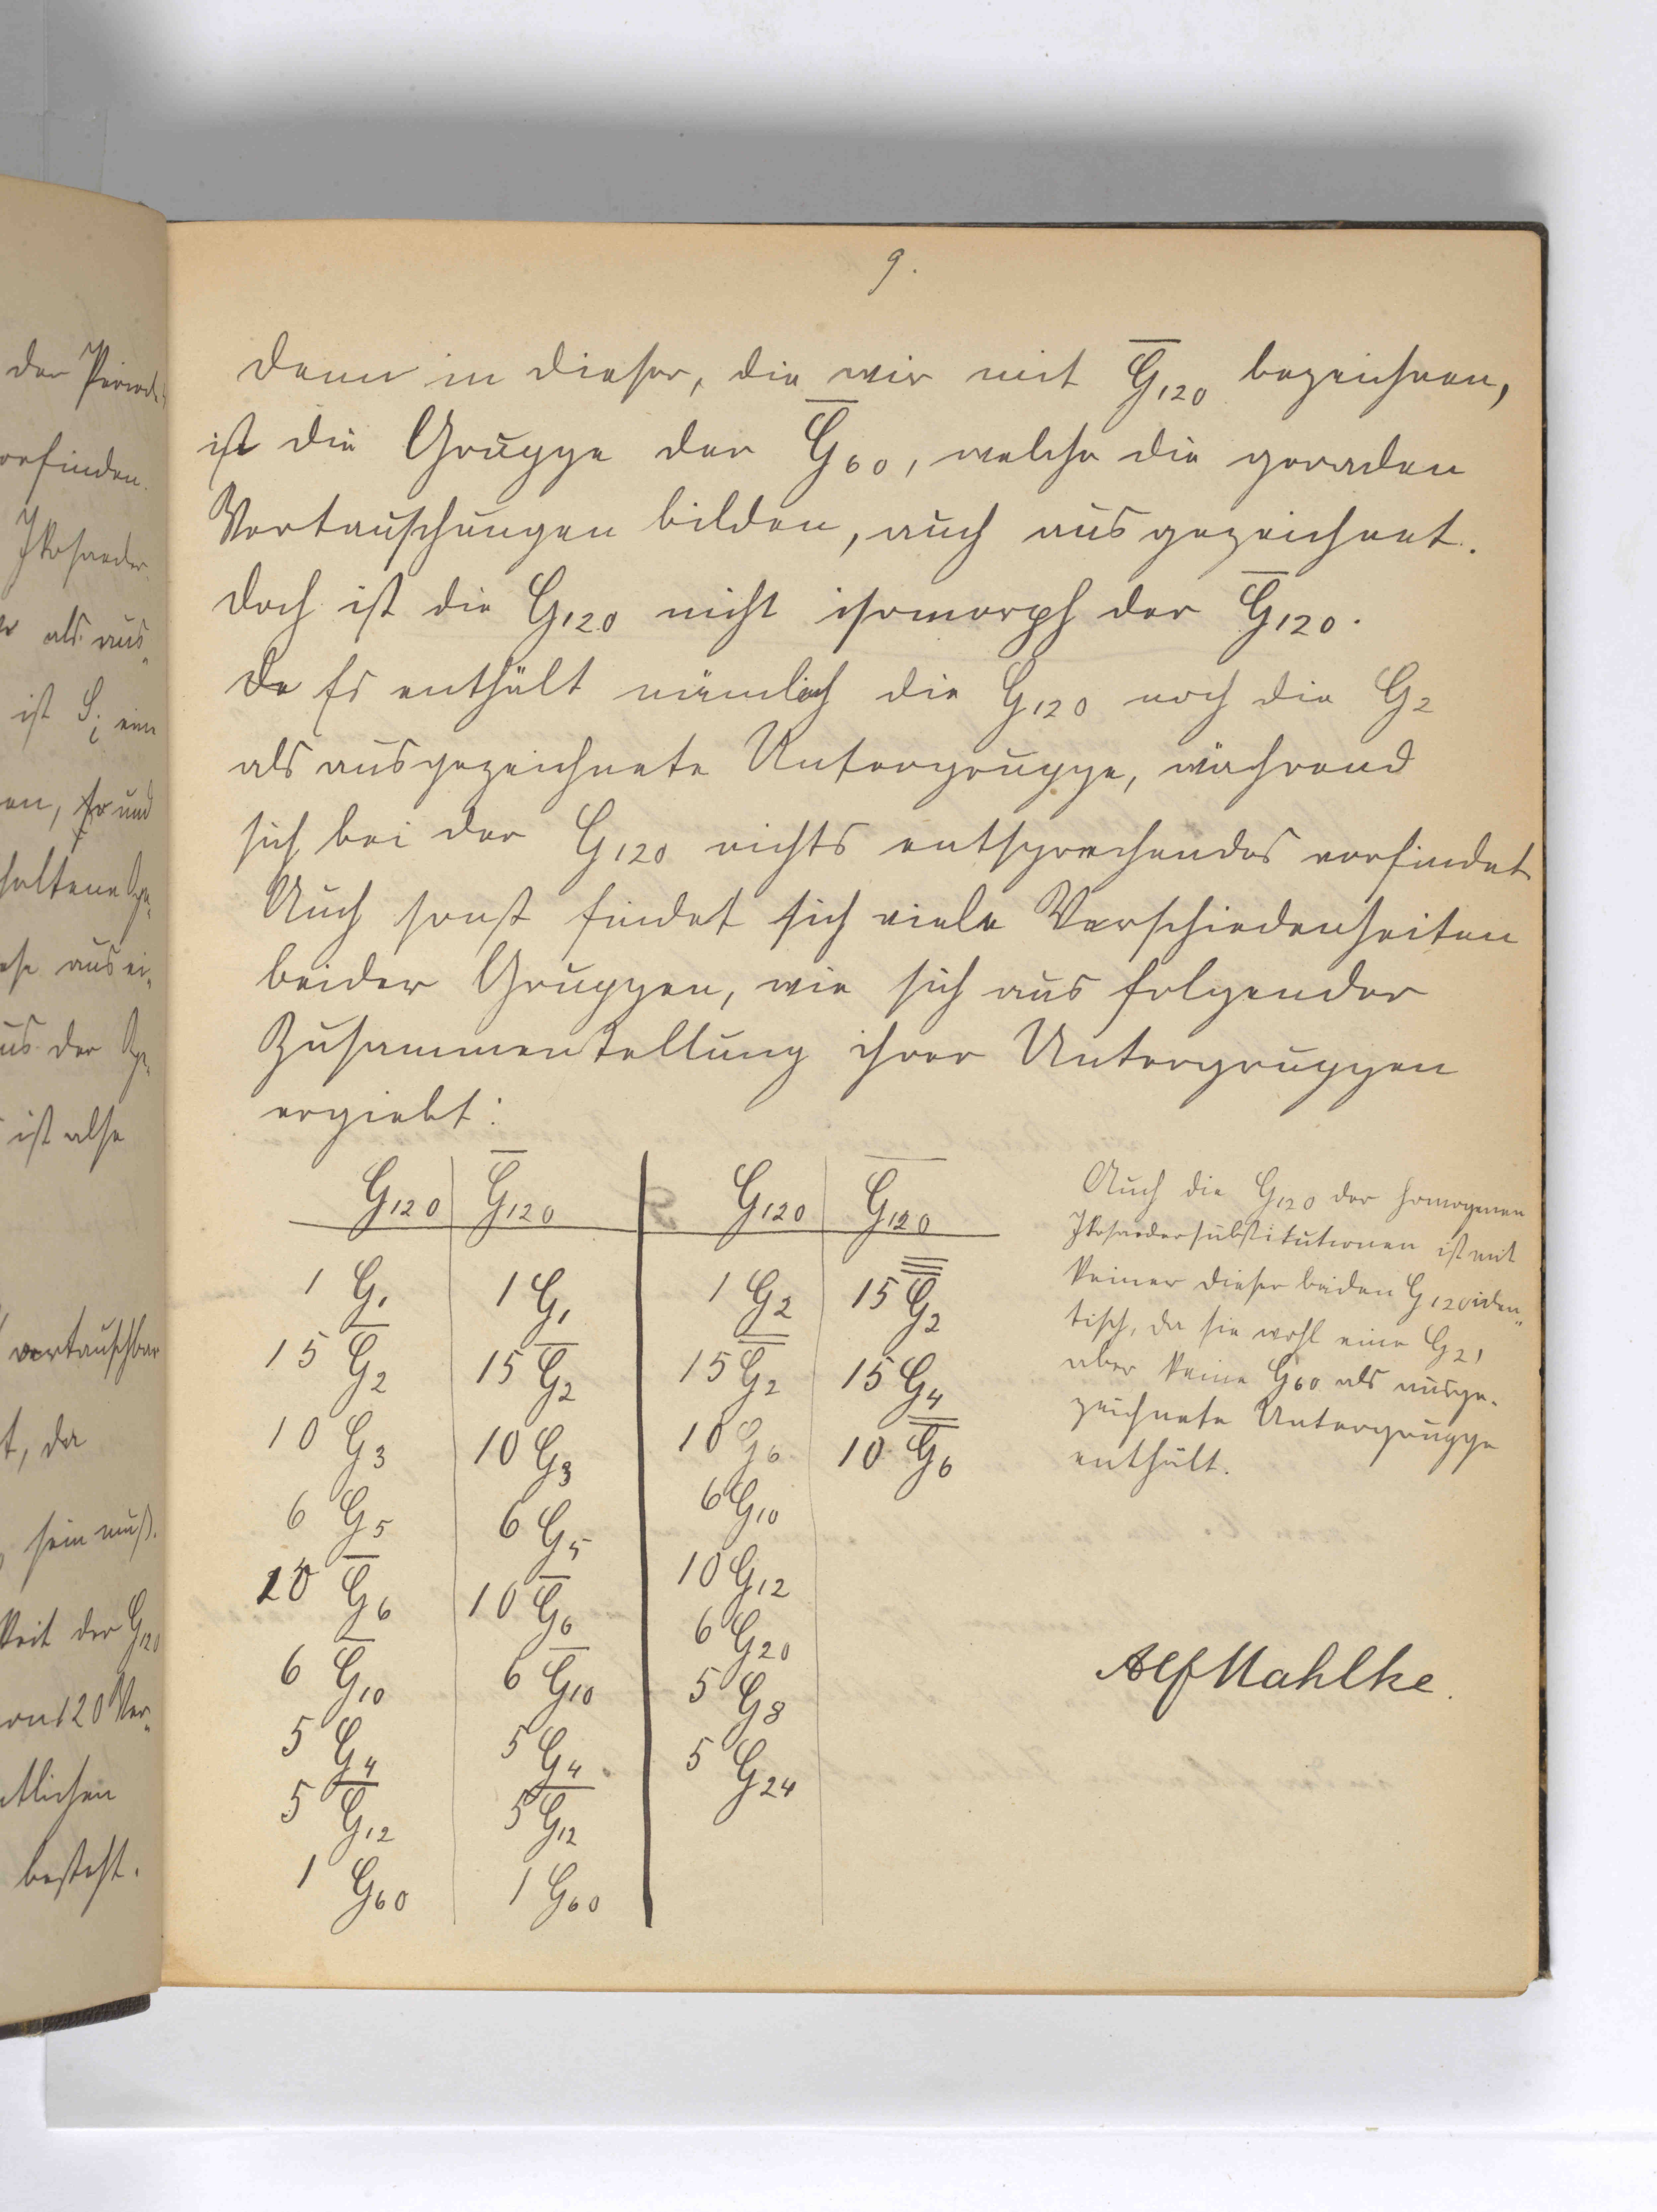 9.
denn in dieser, die wir mit G̅₁₂₀ bezeichnen,
ist die Gruppe der G̅₆₀, welche die geraden
Vertauschungen bilden, auch ausgezeichnet.
Doch ist die G₁₂₀ nicht isomorph der G̅₁₂₀.
Es enthält nämlich die G₁₂₀ noch die G₂
als ausgezeichnete Untergruppe, während
sich bei der G₁₂₀ nichts entsprechendes vorfindet
Auch sonst findet sich viele Verschiedenheiten
beider Gruppen, wie sich aus folgender
Zusammenstellung ihrer Untergruppen
ergiebt:
G₁₂₀ G̅₁₂₀ G₁₂₀ G̅₁₂₀
1 G₁ 1 G₁ 1 G₂ 15 G̿₂
15 G̅₂ 15 G̅₂ 15 G̿₂ 15 G₄
10 G₃ 10 G₃ 10 G₆ 10 G̿₆
6 G₅ 6 G₅ 6 G₁₀
10 G̅₆ 10 G̅₆ 10 G₁₂
6 G̅₁₀ 6 G̅₁₀ 6 G₂₀
5 G₄ 5 G₄ 5 G₈
5 G̅₁₂ 5 G̅₁₂ 5 G₂₄
1 G₆₀ 1 G₆₀
Auch die G₁₂₀ der homogenen
Ikosaedersubstitutionen ist mit
keiner dieser beiden G₁₂₀ iden„
tisch, da sie wohl eine G₂,
aber keine G₆₀ als ausge„
zeichnete Untergruppe
enthält.
Alf Mahlke.
der Period
vorfinden.
Ikosaeder
als aus„
ist Sᵢ ein
en, und
haltene
aus ei„
aus der
ist also
vertauschbar
t, da
sein muß.
keit der G₁₂₀
von 120 Ver„
tlichen
besteht.